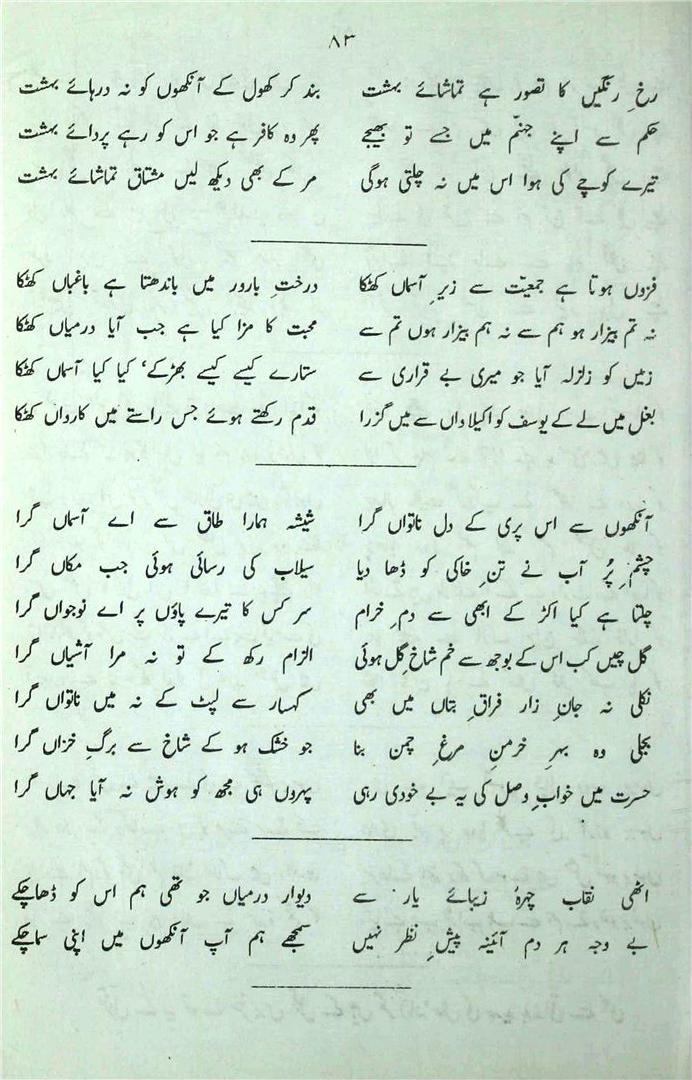 ۸۳
رخِ رنگیں کا تصور ہے تماشائے بہشت بند کر کھول کے آنکھوں کو نہ درہائے بہشت
حکم سے اپنے جہنّم میں جسے تو بھیجے پھر وہ کافر ہے جو اس کو رہے پروائے بہشت
تیرے کوچے کی ہوا اس میں نہ چلتی ہوگی مر کے بھی دیکھ لیں مشتاق تماشائے بہشت
فزوں ہوتا ہے جمعیّت سے زیرِ آسماں کھٹکا درختِ بارور میں باندھتا ہے باغباں کھٹکا
نہ تم بیزار ہو ہم سے نہ ہم بیزار ہوں تم سے محبت کا مزا کیا ہے جب آیا درمیاں کھٹکا
زمیں کو زلزلہ آیا جو میری بے قراری سے ستارے کیسے کیسے بھڑکے، کیا کیا آسماں کھٹکا
بغل میں لے کے یوسف کو اکیلا واں سے میں گزرا قدم رکھتے ہوئے جس راستے میں کارواں کھٹکا
آنکھوں سے اس پری کے دل ناتواں گرا شیشہ ہمارا طاق سے اے آسماں گرا
چشمِ پُر آب نے تنِ خاکی کو ڈھا دیا سیلاب کی رسائی ہوئی جب مکاں گرا
چلتا ہے کیا اکڑ کے ابھی سے دمِ خرام سر کس کا تیرے پاؤں پر اے نوجواں گرا
گل چیں کب اس کے بوجھ سے خم شاخِ گل ہوئی الزام رکھ کے تو نہ مرا آشیاں گرا
نکلی نہ جانِ زار فراقِ بتاں میں بھی کہسار سے لپٹ کے نہ میں ناتواں گرا
بجلی وہ بہرِ خرمنِ مرغِ چمن بنا جو خشک ہو کے شاخ سے برگِ خزاں گرا
حسرت میں خوابِ وصل کی یہ بے خودی رہی پہروں ہی مجھ کو ہوش نہ آیا جہاں گرا
اٹھی نقاب چہرۂ زیبائے یار سے دیوار درمیاں جو تھی ہم اس کو ڈھا چکے
بے وجہ ہر دم آئینہ پیشِ نظر نہیں سمجھے ہم آپ آنکھوں میں اپنی سما چکے